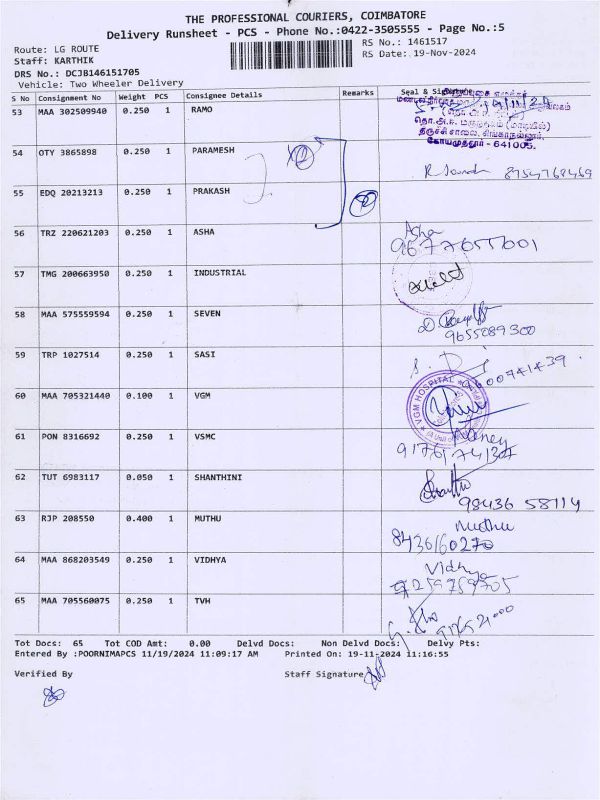 THE PROFESSIONAL COURIERS, COIMBATORE
Delivery Runsheet - PCS - Phone No.:0422-3505555 - Page No.:5
Route: LG ROUTE RS No.: 1461517
Staff: KARTHIK RS Date: 19-Nov-2024
DRS No.: DCJB146151705
Vehicle: Two Wheeler Delivery
S No Consignment No Weight PCS Consignee Details Remarks Seal & Signature
53 MAA 302509940 0.250 1 RAMO
திருச்சி சாலை, சிங்காநல்லூர்,
கோயமுத்தூர் - 641005.
54 OTY 3865898 0.250 1 PARAMESH
8754768469
55 EDQ 20213213 0.250 1 PRAKASH
56 TRZ 220621203 0.250 1 ASHA Asha
9677655001
57 TMG 200663950 0.250 1 INDUSTRIAL
58 MAA 575559594 0.250 1 SEVEN
9655089300
59 TRP 1027514 0.250 1 SASI
60 MAA 705321440 0.100 1 VGM VGM HOSPITAL
61 PON 8316692 0.250 1 VSMC
62 TUT 6983117 0.050 1 SHANTHINI
98436 58114
63 RJP 208550 0.400 1 MUTHU Muthu
8436160270
64 MAA 868203549 0.250 1 VIDHYA Vidhya
65 MAA 705560075 0.250 1 TVH
Tot Docs: 65 Tot COD Amt: 0.00 Delvd Docs: Non Delvd Docs: Delvy Pts:
Entered By :POORNIMAPCS 11/19/2024 11:09:17 AM Printed On: 19-11-2024 11:16:55
Verified By Staff Signature